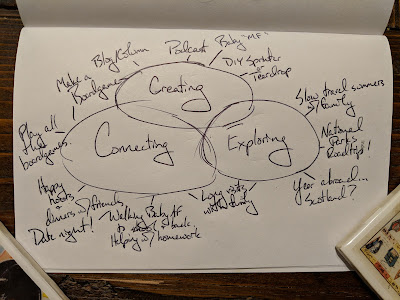 Creating
Connecting
Exploring
Play all
the
boardgames.
Make a
boardgame
Blog/Column
Podcast
Baby "MF"
DIY Sprinter
Teardrop
Slow travel summers
w/family
National
Park
Roadtrips!
Year abroad...
Scotland?
Long visits
with family
Walking Baby AF
to & back.
Helping w/ homework
Happy
hours
dinners w/friends
Date night!